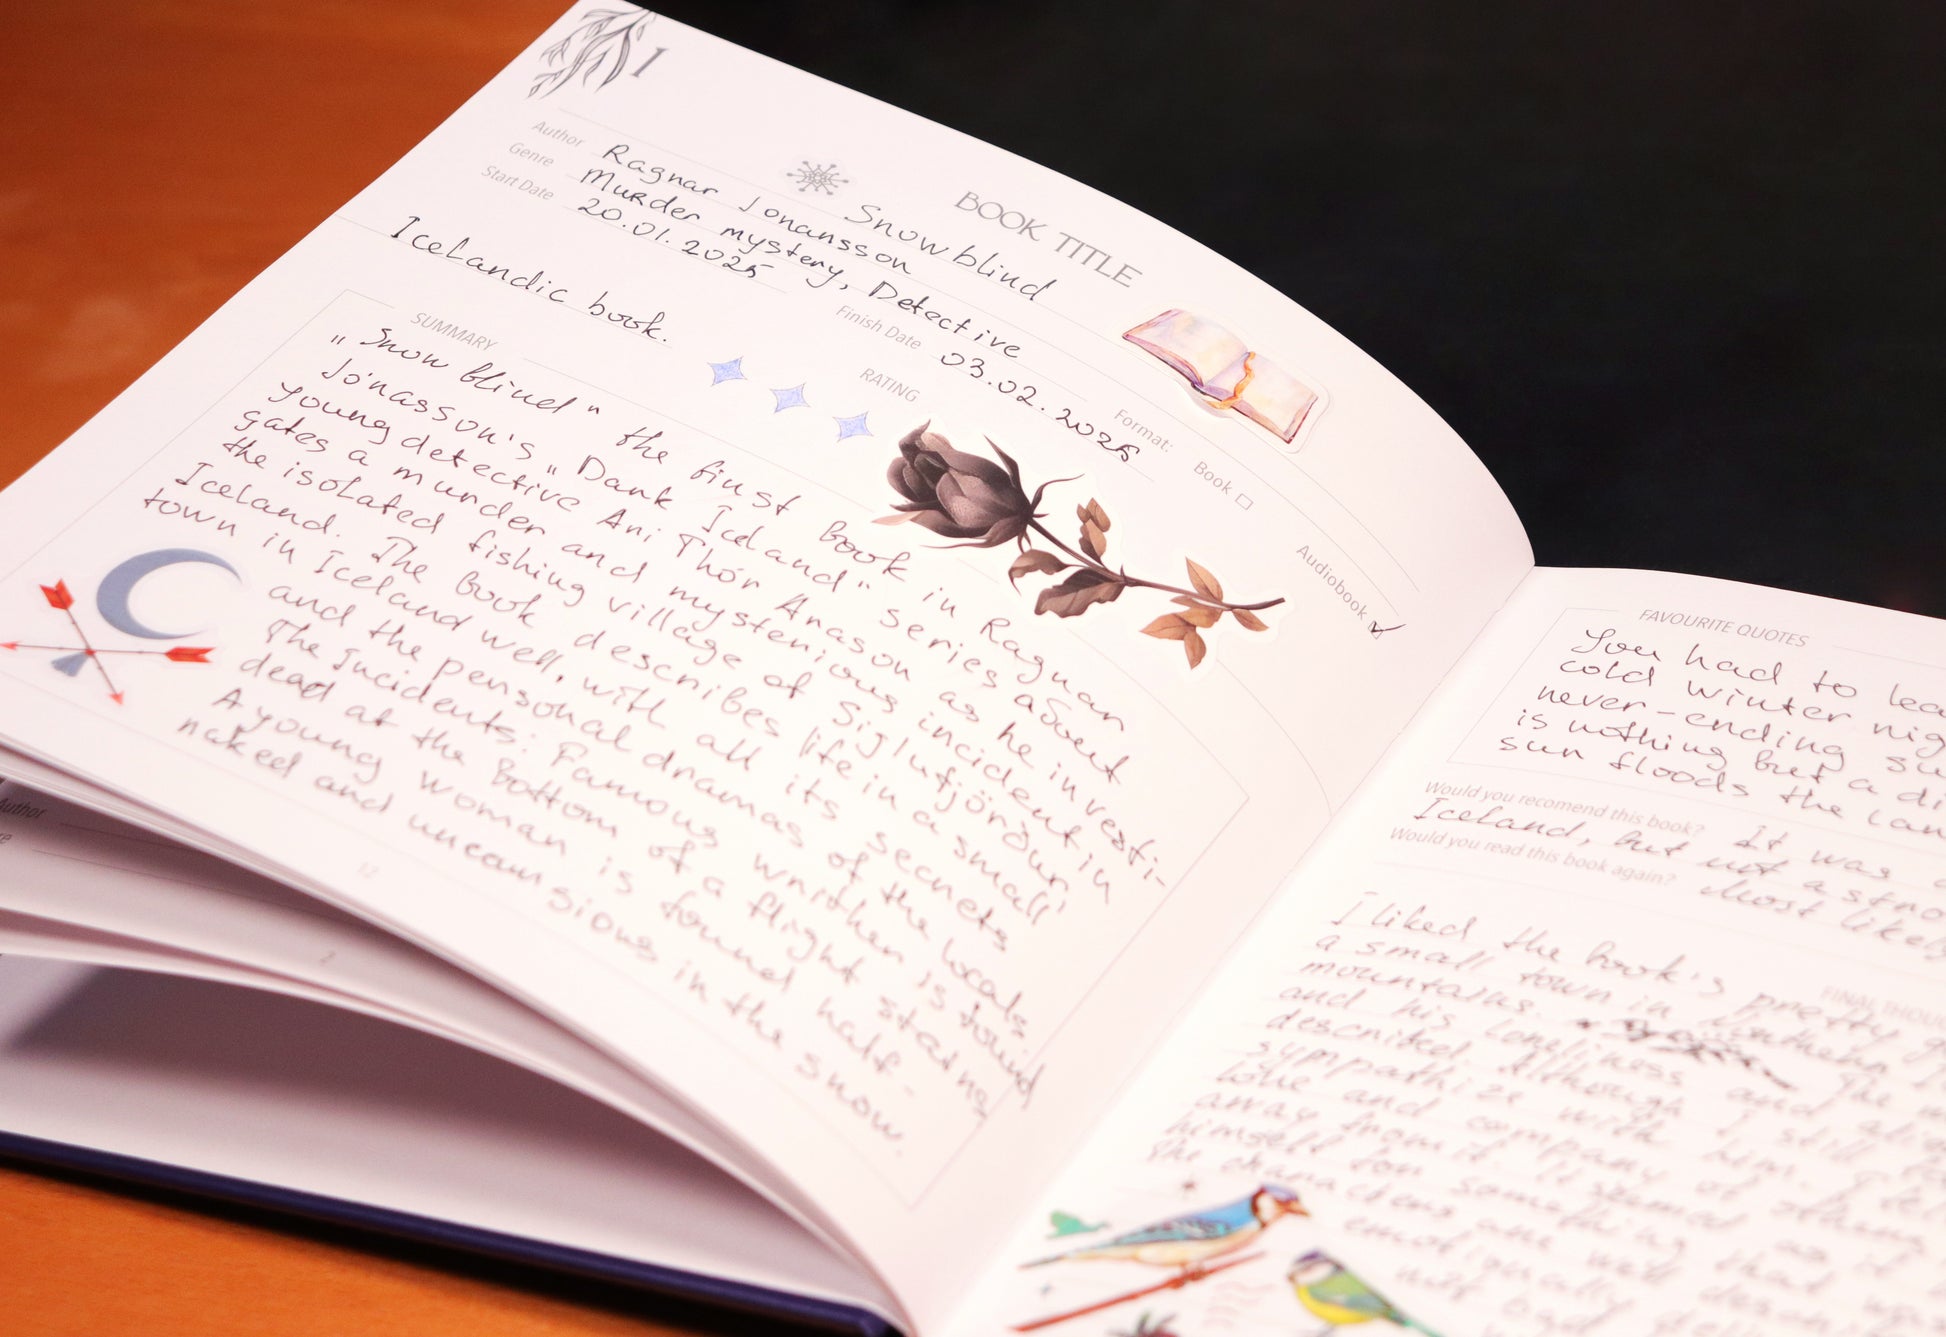 1
BOOK TITLE
Snowblind
Author Ragnar Jonansson
Genre Murder mystery, Detective
Start Date 20.01.2025
Finish Date 03.02.2025
Format: Book Audiobook ✓
Icelandic book.
RATING
SUMMARY
„Snow blind" the first book in Ragnar
Jónasson's „Dark Iceland" series about
young detective Ari Thór Arason as he investi-
gates a murder and mysterious incident in
the isolated fishing village of Siglufjörður
Iceland. The book describes life in a small
town in Iceland well, with all its secrets
and the personal dramas of the locals
The Incidents: Famous writher is found
dead at the bottom of a flight staring
A young woman is found half-
naked and uncounsious in the snow.
12
Author
re
2
FAVOURITE QUOTES
You had to lea
cold winter nig
never-ending su
is nothing but a di
sun floods the lan
Would you recomend this book? It was
Iceland, but not a stro
Would you read this book again? Most likely
FINAL THOU
I liked the book's pretty
a small town in Northern
mountains. The
and his loneliness and
described. Although I still
sympathize with him. I
love and company
away from it. It seemed as it
himself for something that
the characters are well
emotionally